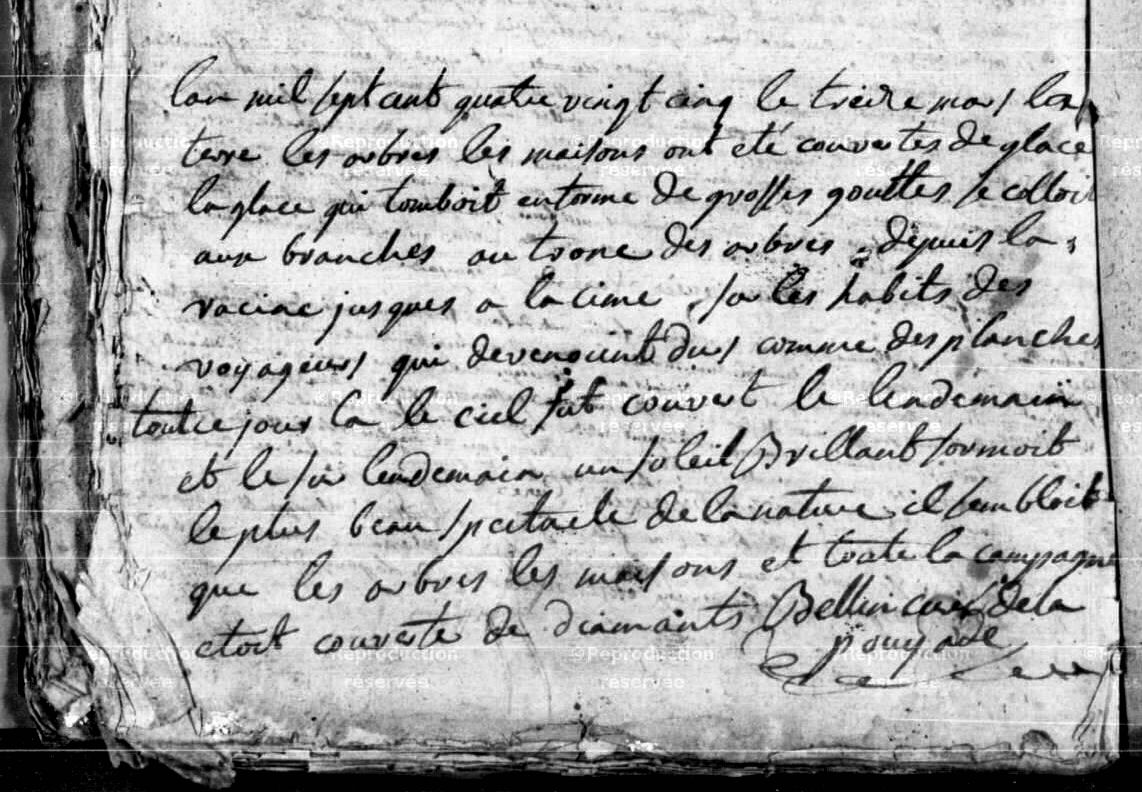 lan mil sept cent quatre vingt cinq le treize mars la
terre les arbres les maisons ont été couvertes de glace
la glace qui tomboit en forme de grosses gouttes se colloit
aux branches au tronc des arbres depuis la
racine jusques a la cime, sur les habits des
voyageurs qui devenoint durs comme des planches
tout ce jour la le ciel fut couvert le lendemain
et le sur lendemain un soleil Brillant formoit
le plus beau spectacle de la nature il sembloit
que les arbres les maisons et toute la campagne
etoit couverte de diamants Bellin curé de la
pouyade